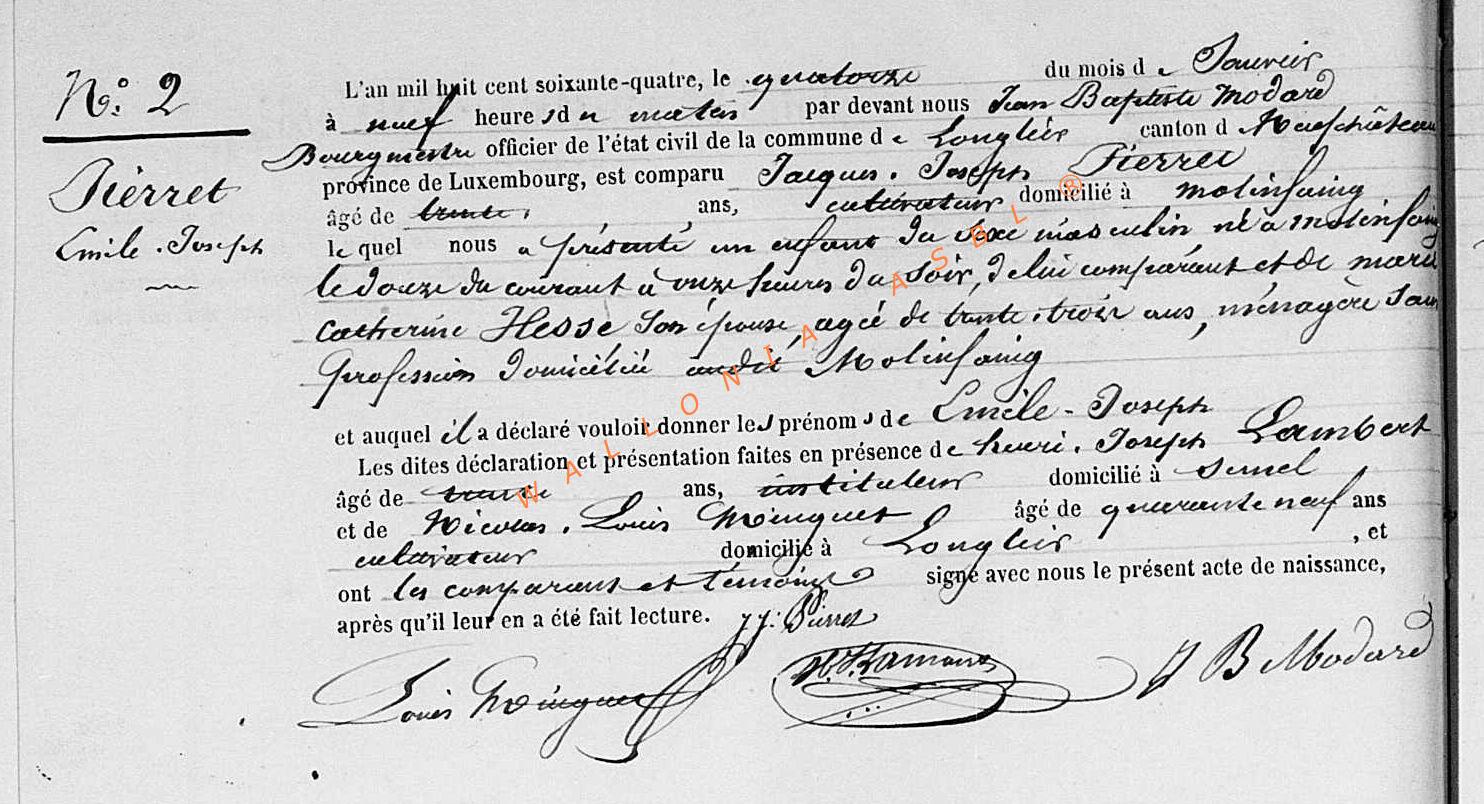 N° 2
Pierret
Emile-Joseph
L'an mil huit cent soixante-quatre, le quatorze du mois de Janvier
à neuf heures du matin par devant nous Jean Baptiste Modard
Bourgmestre officier de l'état civil de la commune de Longlier canton de Neufchâteau
province de Luxembourg, est comparu Jacques-Joseph Pierret
âgé de trente ans, cultivateur domicilié à Molinfaing
le quel nous a présenté un enfant du sexe masculin né à Molinfaing
le douze du courant à onze heures du soir, de lui comparant et de marie
Catherine Hesse son épouse, agée de trente-trois ans, ménagère sans
profession domiciliée audit Molinfaing
et auquel il a déclaré vouloir donner les prénoms de Emile-Joseph
Les dites déclaration et présentation faites en présence de henri-Joseph Lambert
âgé de trente ans, instituteur domicilié à Semel
et de Nicolas-Louis Minguet âgé de quarante neuf ans
cultivateur domicilié à Longlier, et
ont les comparant et témoins signé avec nous le présent acte de naissance,
après qu'il leur en a été fait lecture. J J. Pierret
Louis Minguet J B Modard
WALLONIA ASBL ®